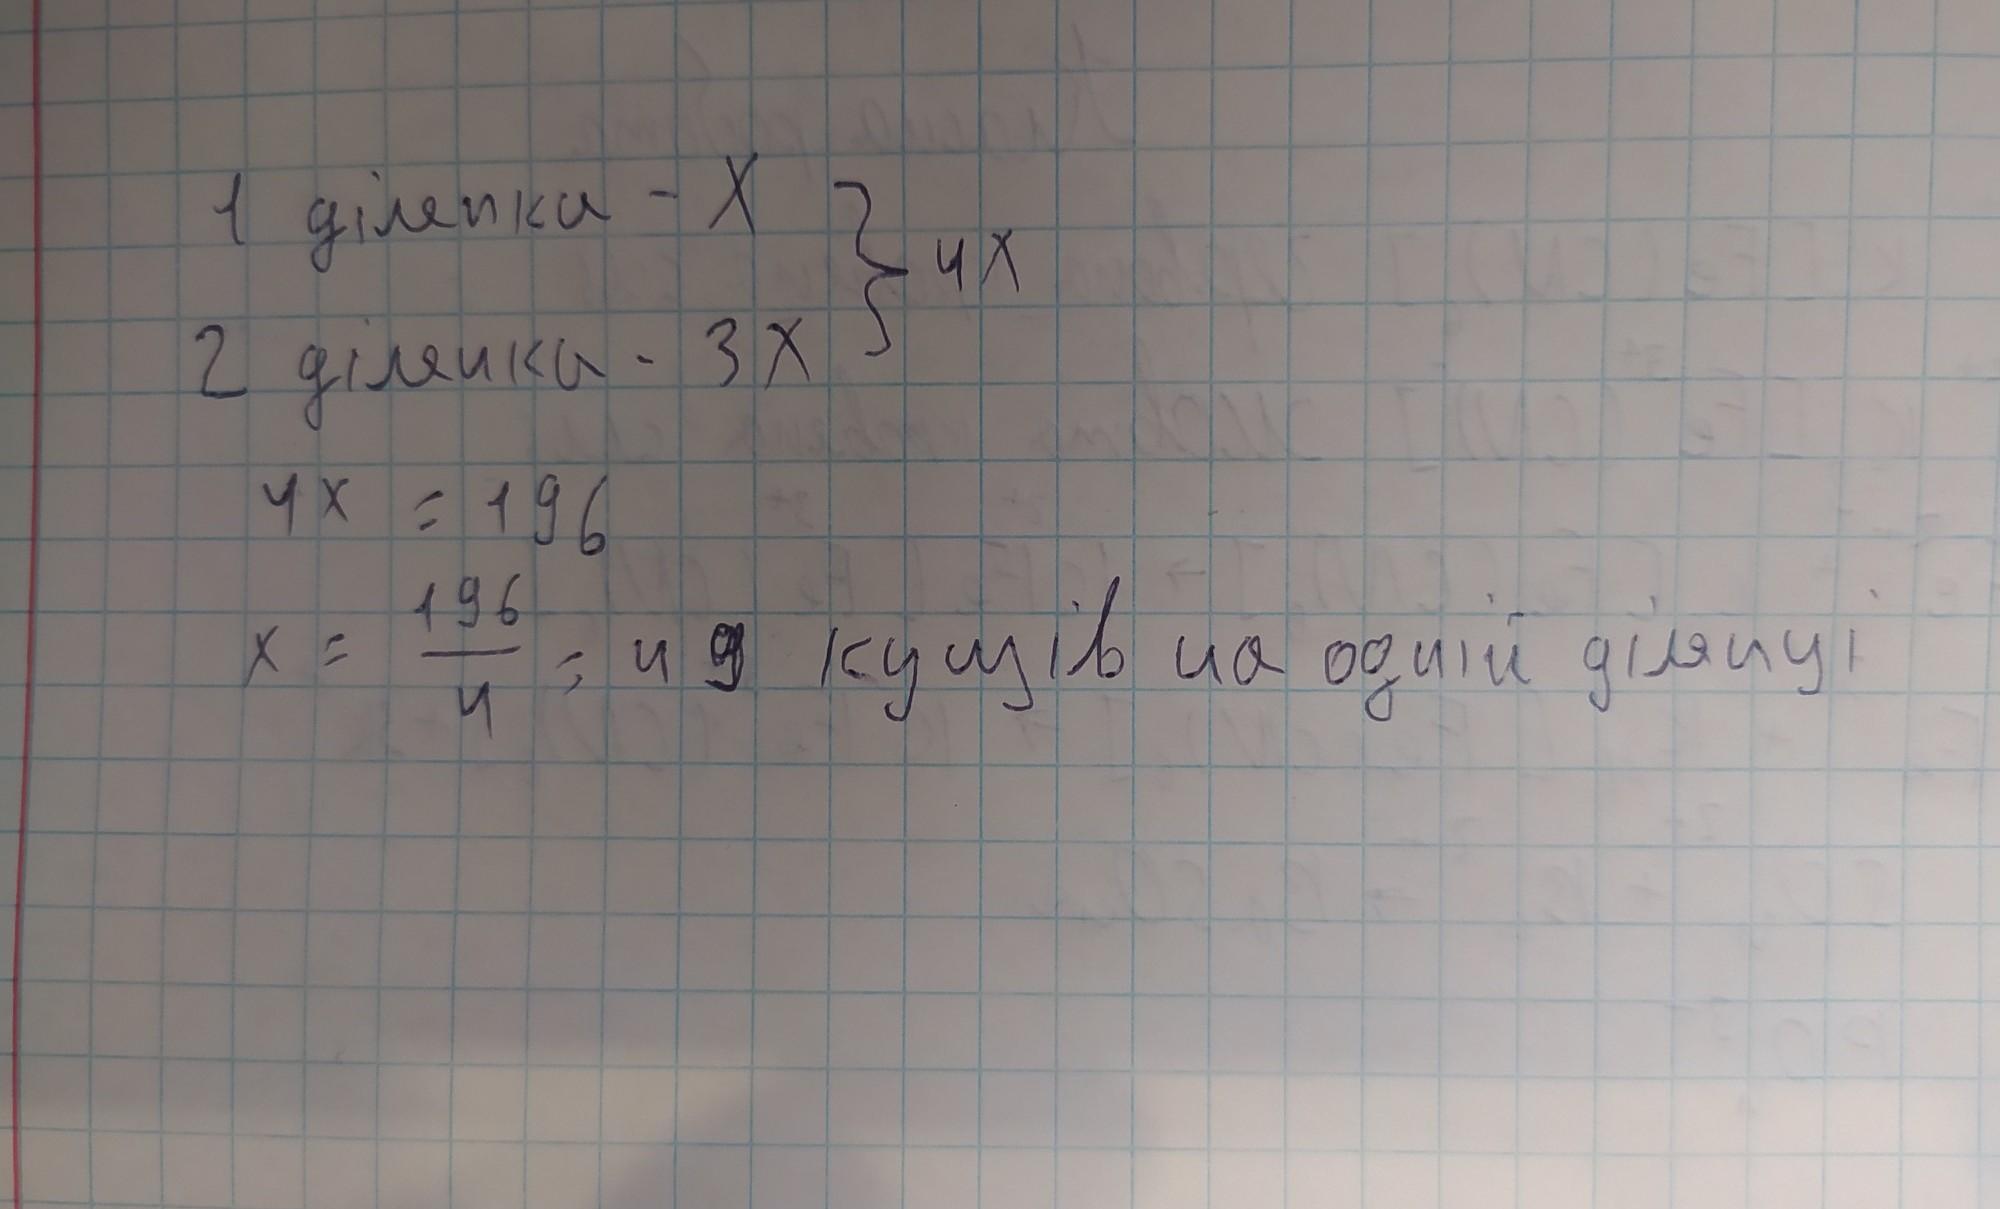 1 ділянка - X } 4X
2 ділянка - 3X
4x = 196
x = 196/4 = 49 кущів на одній ділянці